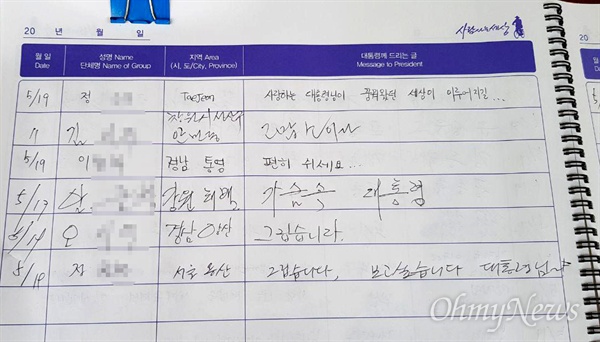 20 년 월 일
사람사는세상
월 일 Date 성명 Name 단체명 Name of Group 지역 Area (시, 도/City, Province) 대통령께 드리는 글 Message to President
5/19 정 Taejeon 사랑하는 대통령님이 꿈꿔왔던 세상이 이루어지길...
" 김 창원시
5/19 이 경남 통영 편히 쉬세요...
5/19 강원 가슴속 대통령
5/19 오 경남 양산 그립습니다.
5/19 서울 용산 그립습니다, 보고싶습니다 대통령님
OhmyNews
20